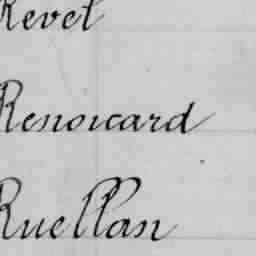 Revel
Renouard
Ruellan